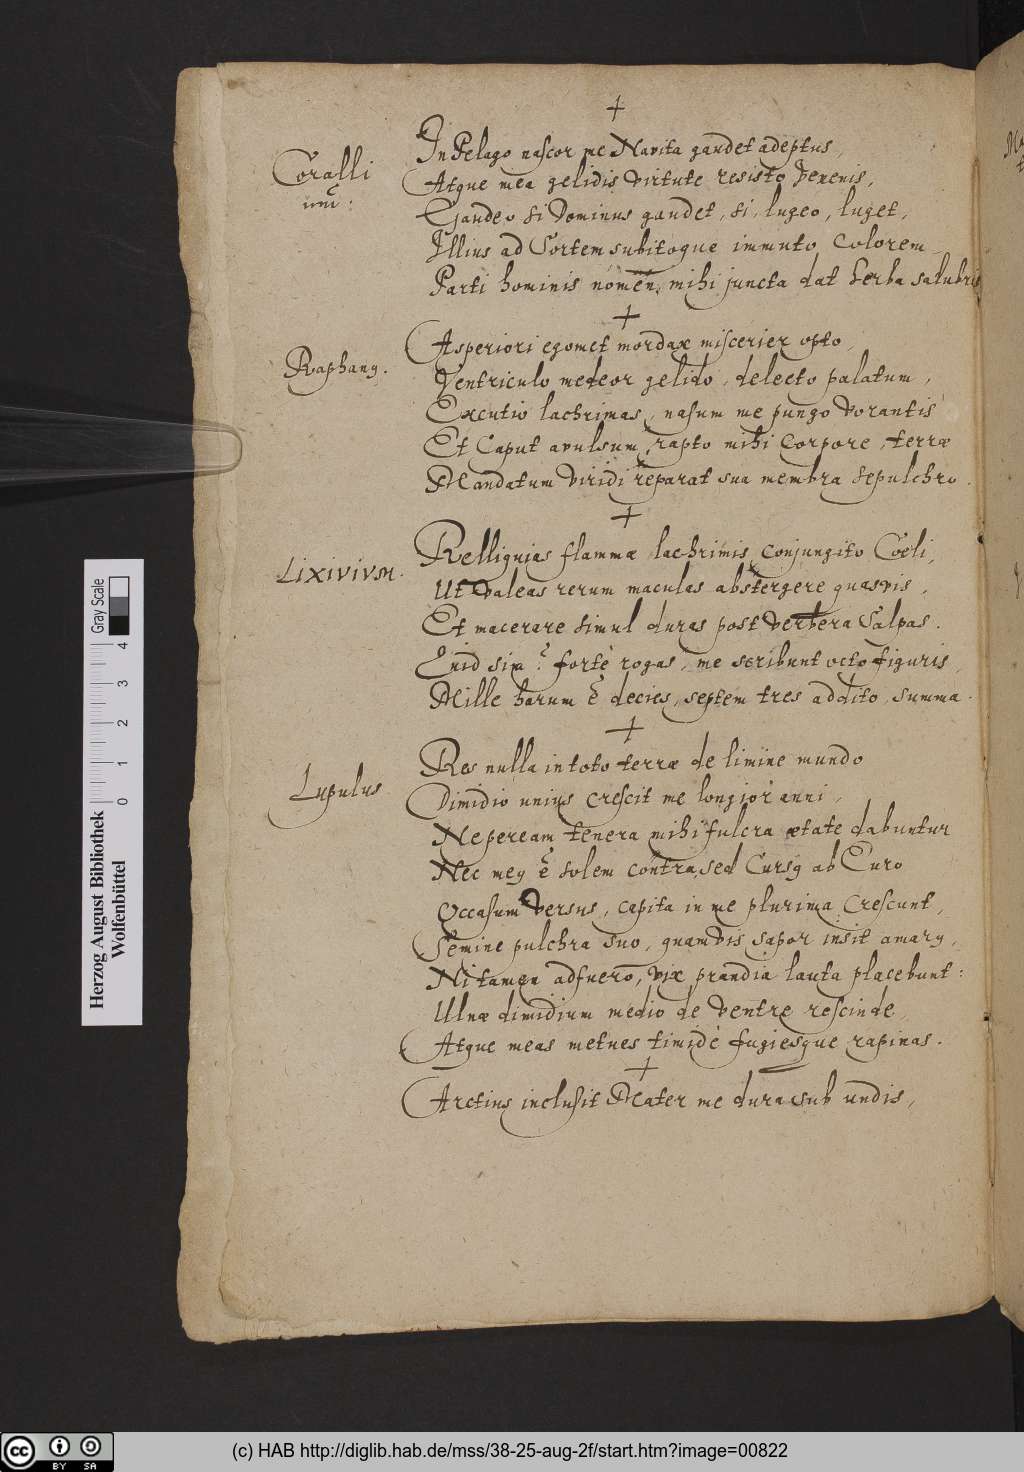 +
In Pelago nascor me Navita gaudet adeptus,
Coralli
um:
Atque mea gelidis virtute resisto venenis,
Gaudeo si Dominus gaudet, si lugeo, luget,
Illius ad Sortem subitoque immuto Colorem
Parti hominis nomen, mihi juncta dat herba salubris
+
Asperiori egomet mordax miscerier opto,
Raphanꝰ.
Ventriculo medeor gelido, delecto palatum,
Excutio lachrimas, nasum me pungo vorantis
Et Caput avulsum, rapto mihi Corpore, terræ
Mandatum viridi reparat sua membra sepulchro.
+
Relliquias flammæ lachrimis Conjungito Coeli,
Lixivium.
Ut valeas rerum maculas abstergere quasvis,
Et macerare simul duras post verbera Salpas.
Quid sim? fortè rogas, me scribunt octo figuris,
Mille harum ē decies, septem tres addito, summa.
+
Res nulla in toto terræ de limine mundo
Lupulus
Dimidio unius crescit me longior anni,
Ne peream tenera mihi fulcra ætate dabuntur
Nec meꝰ ē solem contra, sed Cursꝰ ab Euro
Occasum versus, capita in me plurima Crescunt,
Semine pulchra suo, quamvis sapor insit amarꝰ,
Ni tamen adfuero, vix prandia lauta placebunt:
Ulnæ dimidium medio de ventre rescinde,
Atque meas metues timidè fugiesque rapinas.
+
Arctius inclusit Mater me dura sub undis,
Gray Scale
0 1 2 3 4
Herzog August Bibliothek
Wolfenbüttel
cc BY SA
(c) HAB http://diglib.hab.de/mss/38-25-aug-2f/start.htm?image=00822